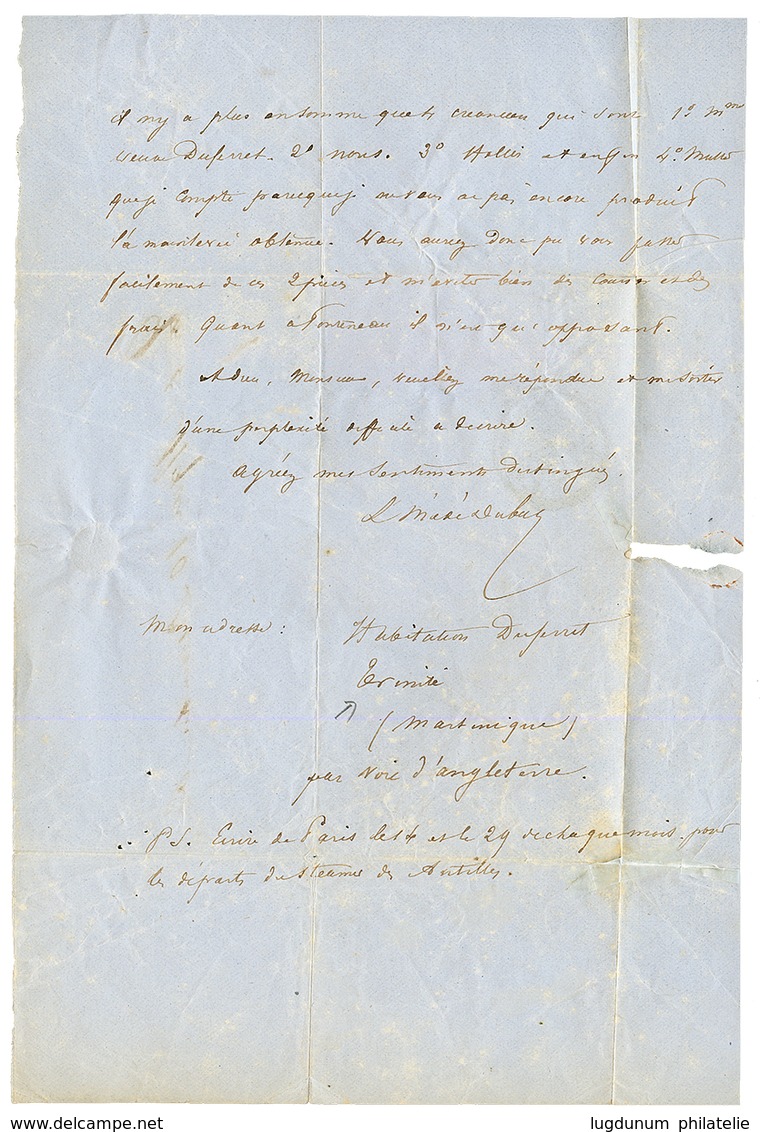 il n'y a plus en somme que 4 créanciers qui sont 1º Mme
veuve Duferret. 2º nous. 3º Hollis et enfin 4º.
que je compte parceque je ne vous ai pas encore produit
la mainlevée obtenue. Vous auriez donc pu vous passer
facilement de ces 2 pièces et m'eviter bien des courses et des
frais. Quant à Fonteneau il n'est qu'opposant.
Adieu, Monsieur, veuillez me répondre et me sortir
d'une perplexité difficile a décrire.
Agréez mes sentiments distingués.
Mon adresse : Habitation Duferret
Trinité
(Martinique)
par voie d'angleterre.
PS. Ecrire de Paris le 14 et le 29 de chaque mois pour
les départs du steamer des Antilles.
www.delcampe.net
lugdunum philatelie